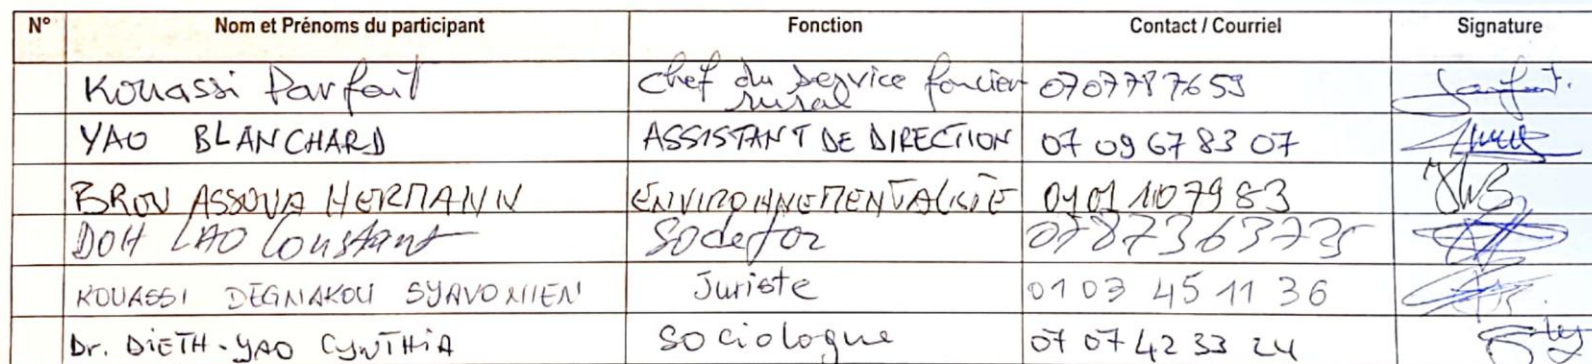 N° Nom et Prénoms du participant Fonction Contact / Courriel Signature
Kouassi Parfait Chef du service foncier rural 0707787659
YAO BLANCHARD ASSISTANT DE DIRECTION 07 09 67 83 07
BROU ASSOUA HERMANN ENVIRONNEMENTALISTE 0101107983
DOH LAO Constant Sodefor 0787363735
KOUASSI DEGNAKOU Juriste 01 03 45 11 36
Dr. DIETH-YAO CYNTHIA Sociologue 07 07 42 33 24